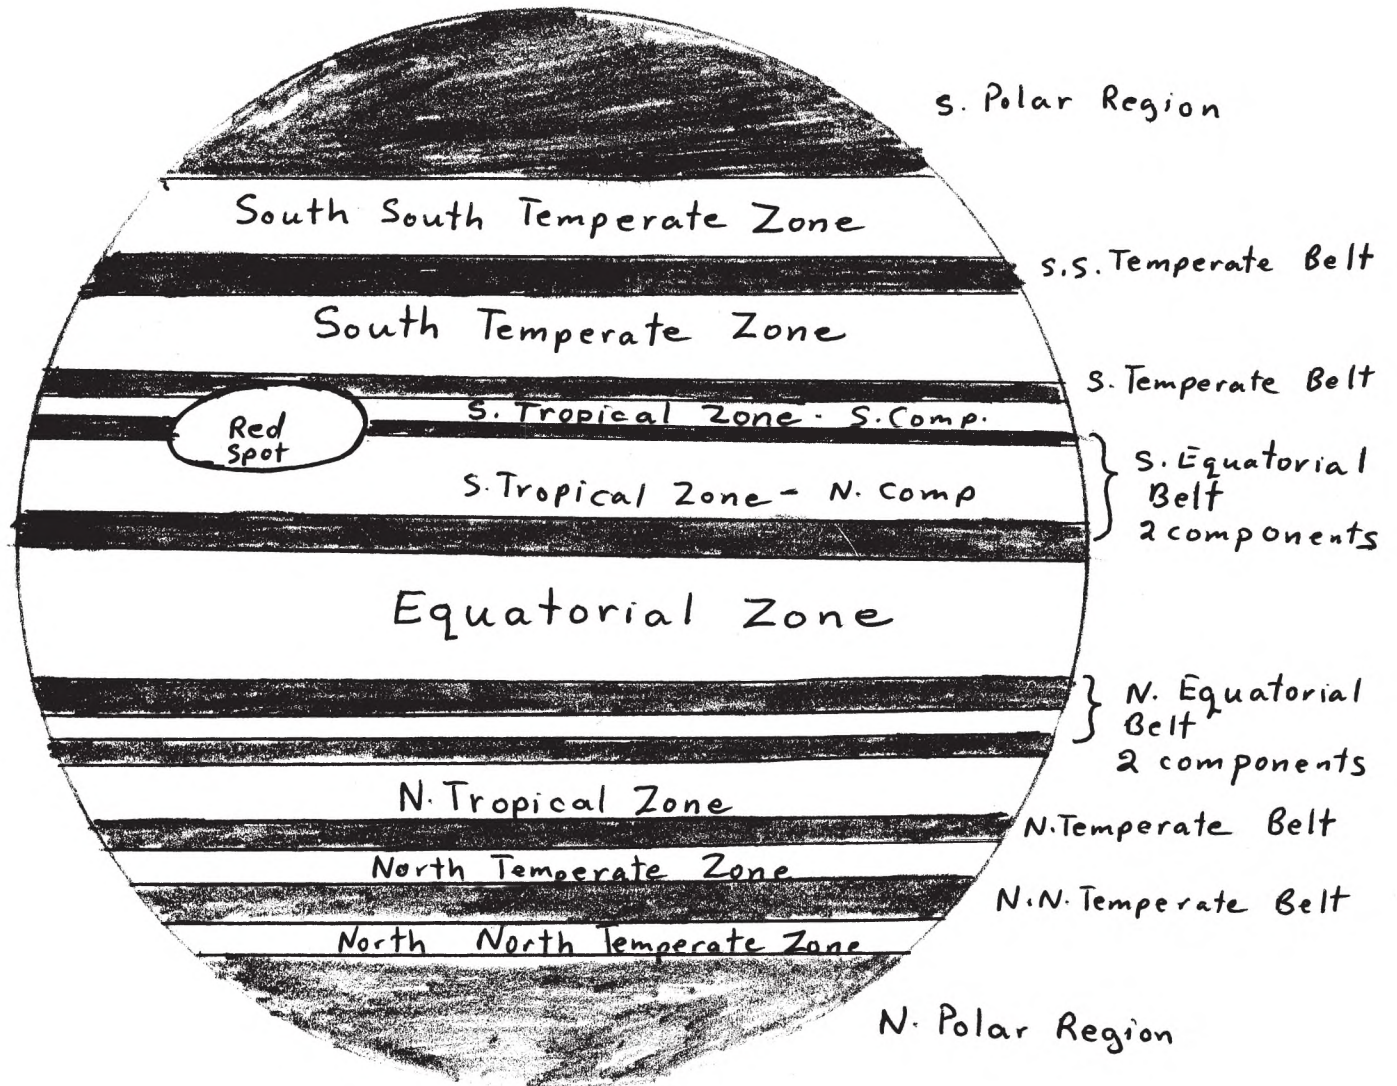 S. Polar Region
South South Temperate Zone
S.S. Temperate Belt
South Temperate Zone
S. Temperate Belt
S. Tropical Zone - S. Comp.
Red
Spot
S. Equatorial
Belt
2 components
S. Tropical Zone - N. Comp
Equatorial Zone
N. Equatorial
Belt
2 components
N. Tropical Zone
N. Temperate Belt
North Temperate Zone
N.N. Temperate Belt
North North Temperate Zone
N. Polar Region